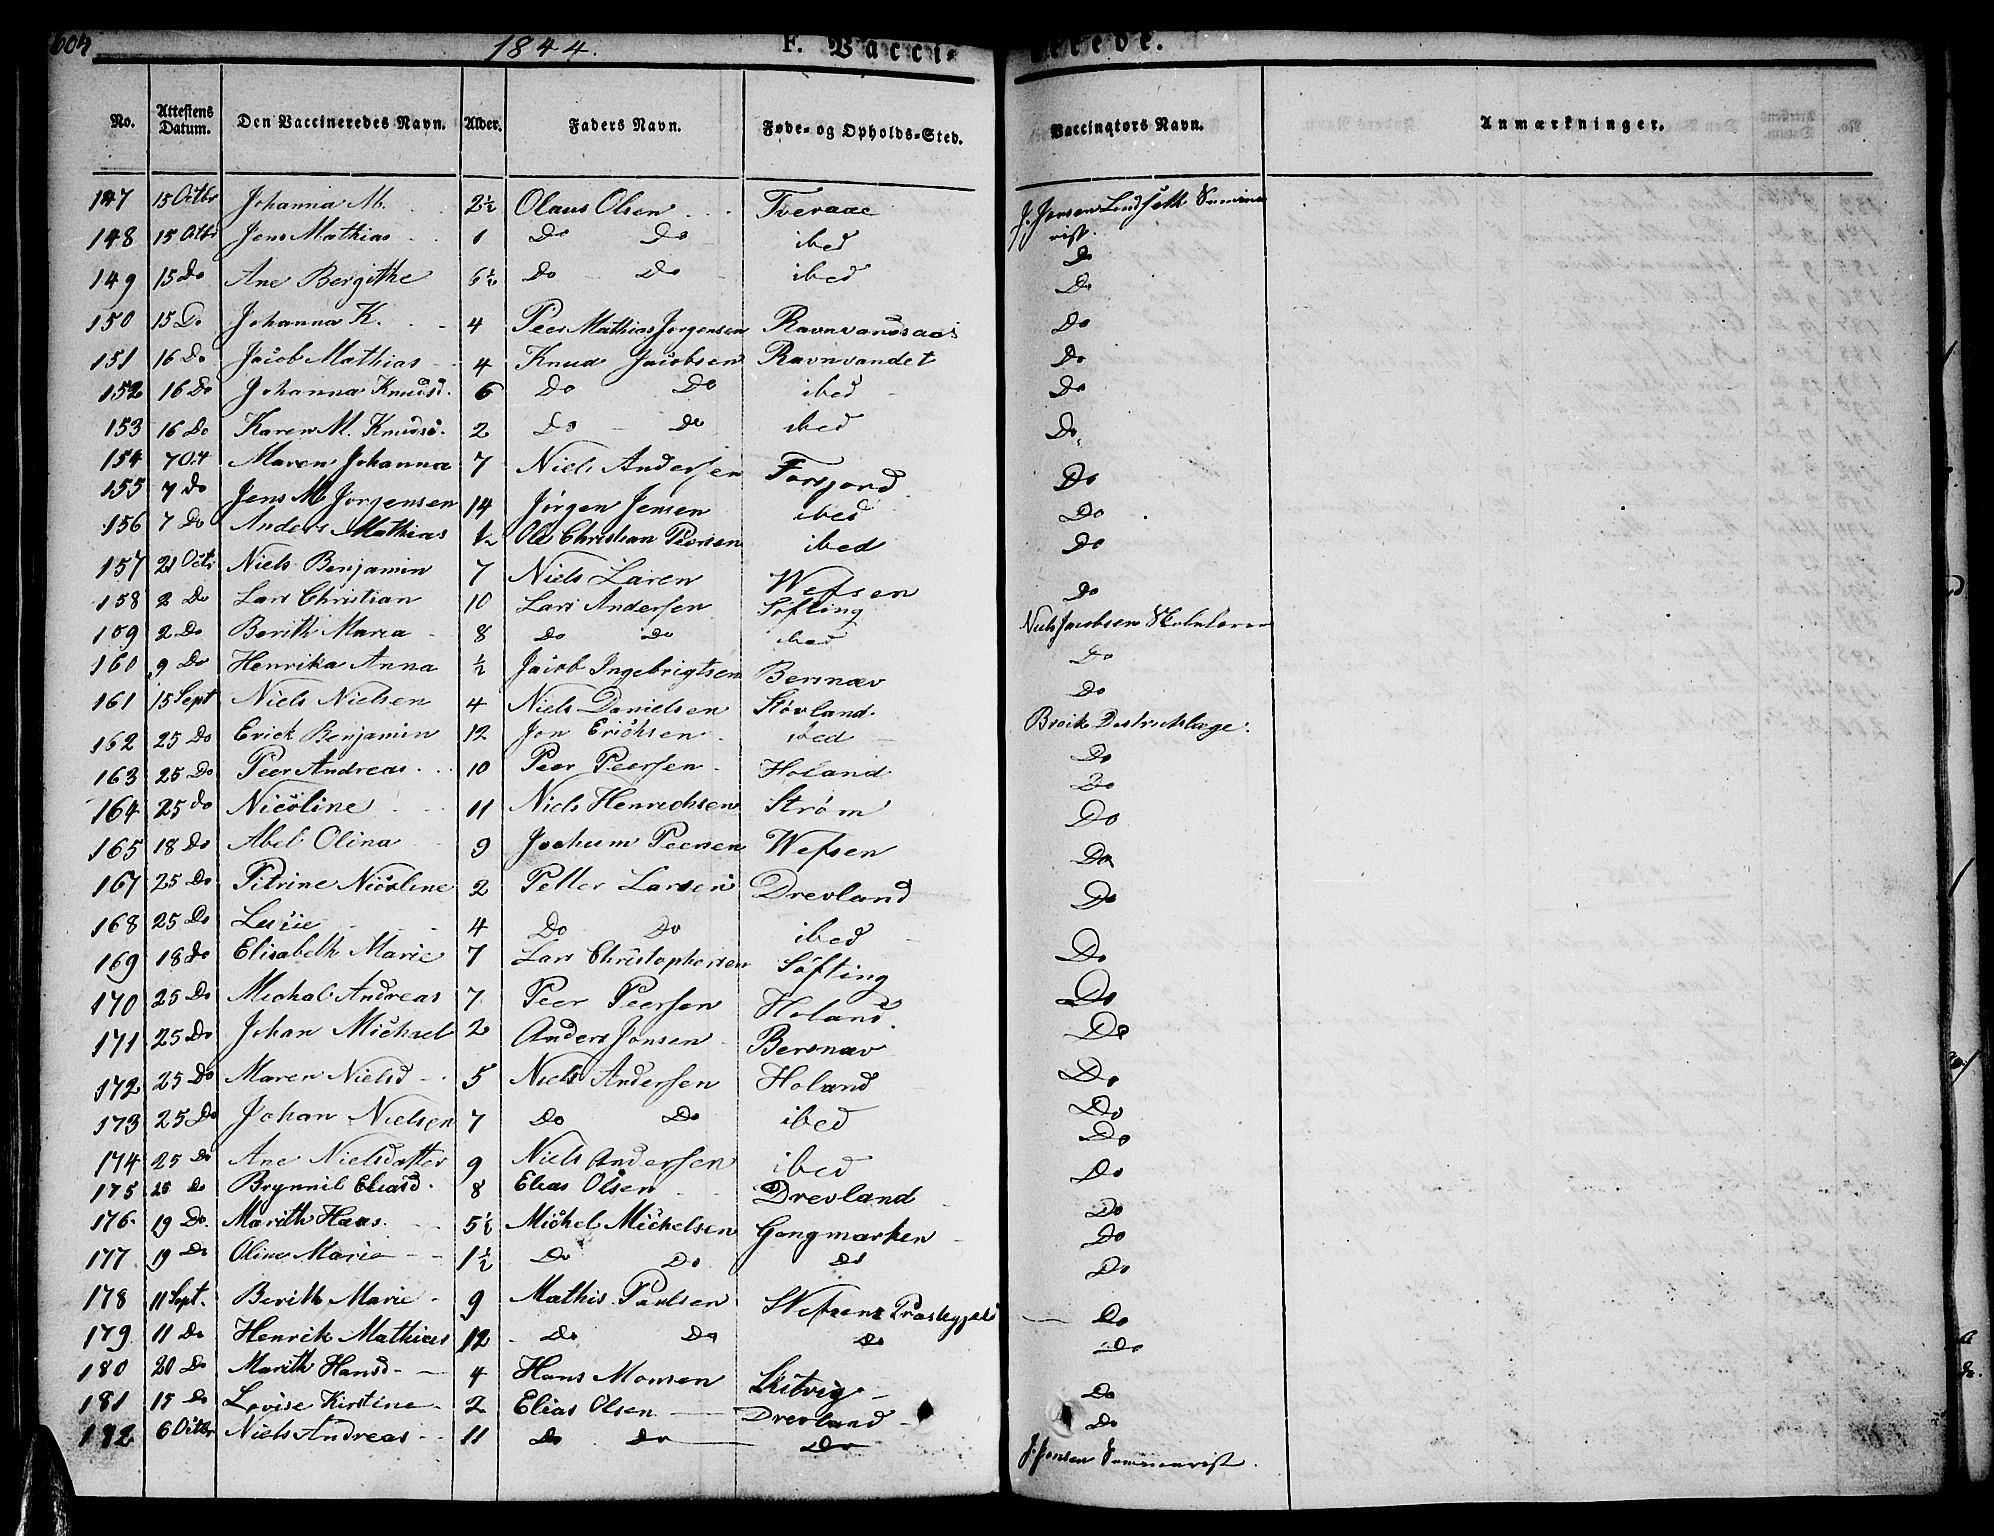 604 1844. F. Vacci- nerede.
No. Attestens Datum. Den Vaccineredes Navn. Alder. Faders Navn. Føde- og Opholds-Sted. Vaccinators Navn. Anmærkninger.
147 15 Octbr Johanna M. 2½ Olaus Olsen Tveraae J. Jensen Lindseth Semina
148 15 Octbr Jens Mathias 1 Do Do ibed rist. Do
149 15 Do Ane Bergithe 6½ Do Do ibed Do
150 15 Do Johanna K. 4 Peer Mathias Jørgensen Ravnvandsaas Do
151 16 Do Jacob Mathias 4 Knud Jacobsen Ravnvandet Do
152 16 Do Johanna Knudsd. 6 Do Do ibed Do
153 16 Do Karen M. Knudsd. 2 Do Do ibed Do
154 7 Oct Maren Johanna 7 Niels Andersen Forsjord Do
155 7 Do Jens M Jorgensen 14 Jørgen Jensen ibed Do
156 7 Do Anders Mathias ½ Ole Christian Peersen ibed Do
157 21 Octr Niels Benjamin 7 Niels Laren Wefsen Do
158 2 Do Lars Christian 10 Lars Andersen Søfting Niels Jacobsen Skolelærer
159 2 Do Berith Maria 8 Do Do ibed Do
160 9 Do Henrika Anna ½ Jacob Ingebrigtsen Bersnæv Do
161 15 Sept Niels Nielsen 4 Niels Danielsen Støvland. Destriktslæge.
162 25 Do Erick Benjamin 12 Jon Erichsen ibed Do
163 25 Do Peer Andreas 10 Peer Peersen Holand Do
164 25 do Nicoline 11 Niels Henrichsen Strøm Do
165 18 Do Abel Olina 9 Jochum Peersen Wefsen Do
167 25 Do Pitrine Nicoline 2 Petter Larsen Drevland Do
168 25 Do Lucie 4 Do Do ibed
169 18 Do Elisabeth Marie 7 Lars Christophersen Søfting Do
170 25 Do Michal Andreas 7 Peer Peersen Holand. Do
171 25 Do Johan Michael 2 Anders Jonsen Bersnæv Do
172 25 Do Maren Nielsd 5 Niels Andersen Holand Do
173 25 Do Johan Nielsen 7 Do Do ibed Do
174 25 Do Ane Nielsdatter 9 Niels Andersen ibed Do
175 25 Do Brynnil Eliasd. 8 Elias Olsen Drevland Do
176 19 Do Marith Haas 5½ Michel Mickelsen Gangmarken Do
177 19 Do Oline Marie 1½ Do Do Do Do
178 11 Sept. Berith Marie 9 Mathis Paulsen Wefsens Præstegjeld Do
179 11 Do Henrik Mathias 12 Do Do Do Do
180 20 Do Marith Hansd 4 Hans Monsen Do
181 15 Do Lovise Kirstine 2 Elias Olsen Drevland Do
182 6 Octbr Niels Andreas 11 Do Do Do J. Jensen Semenarist.